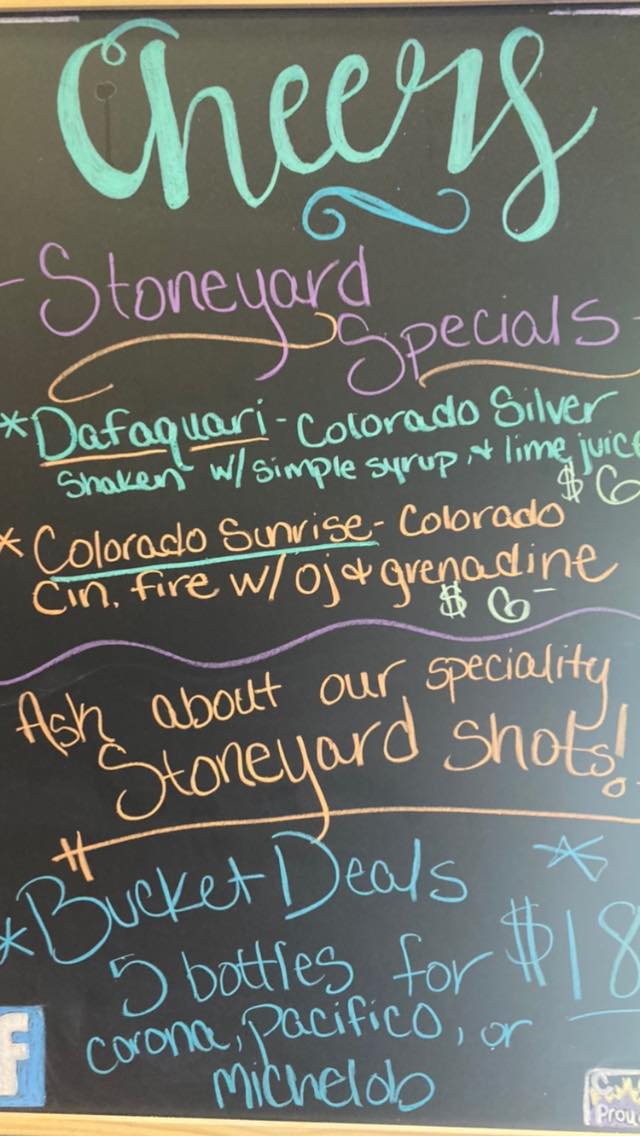 Cheers
- Stoneyard
Specials -
* Dafaquari - Colorado Silver
Shaken w/simple syrup & lime juice
$6
* Colorado Sunrise - Colorado
Cin. fire w/ oj & grenadine
$6-
Ask about our speciality
Stoneyard shots!
* Bucket Deals *
5 bottles for $18
corona, pacifico, or
michelob
f
Prou